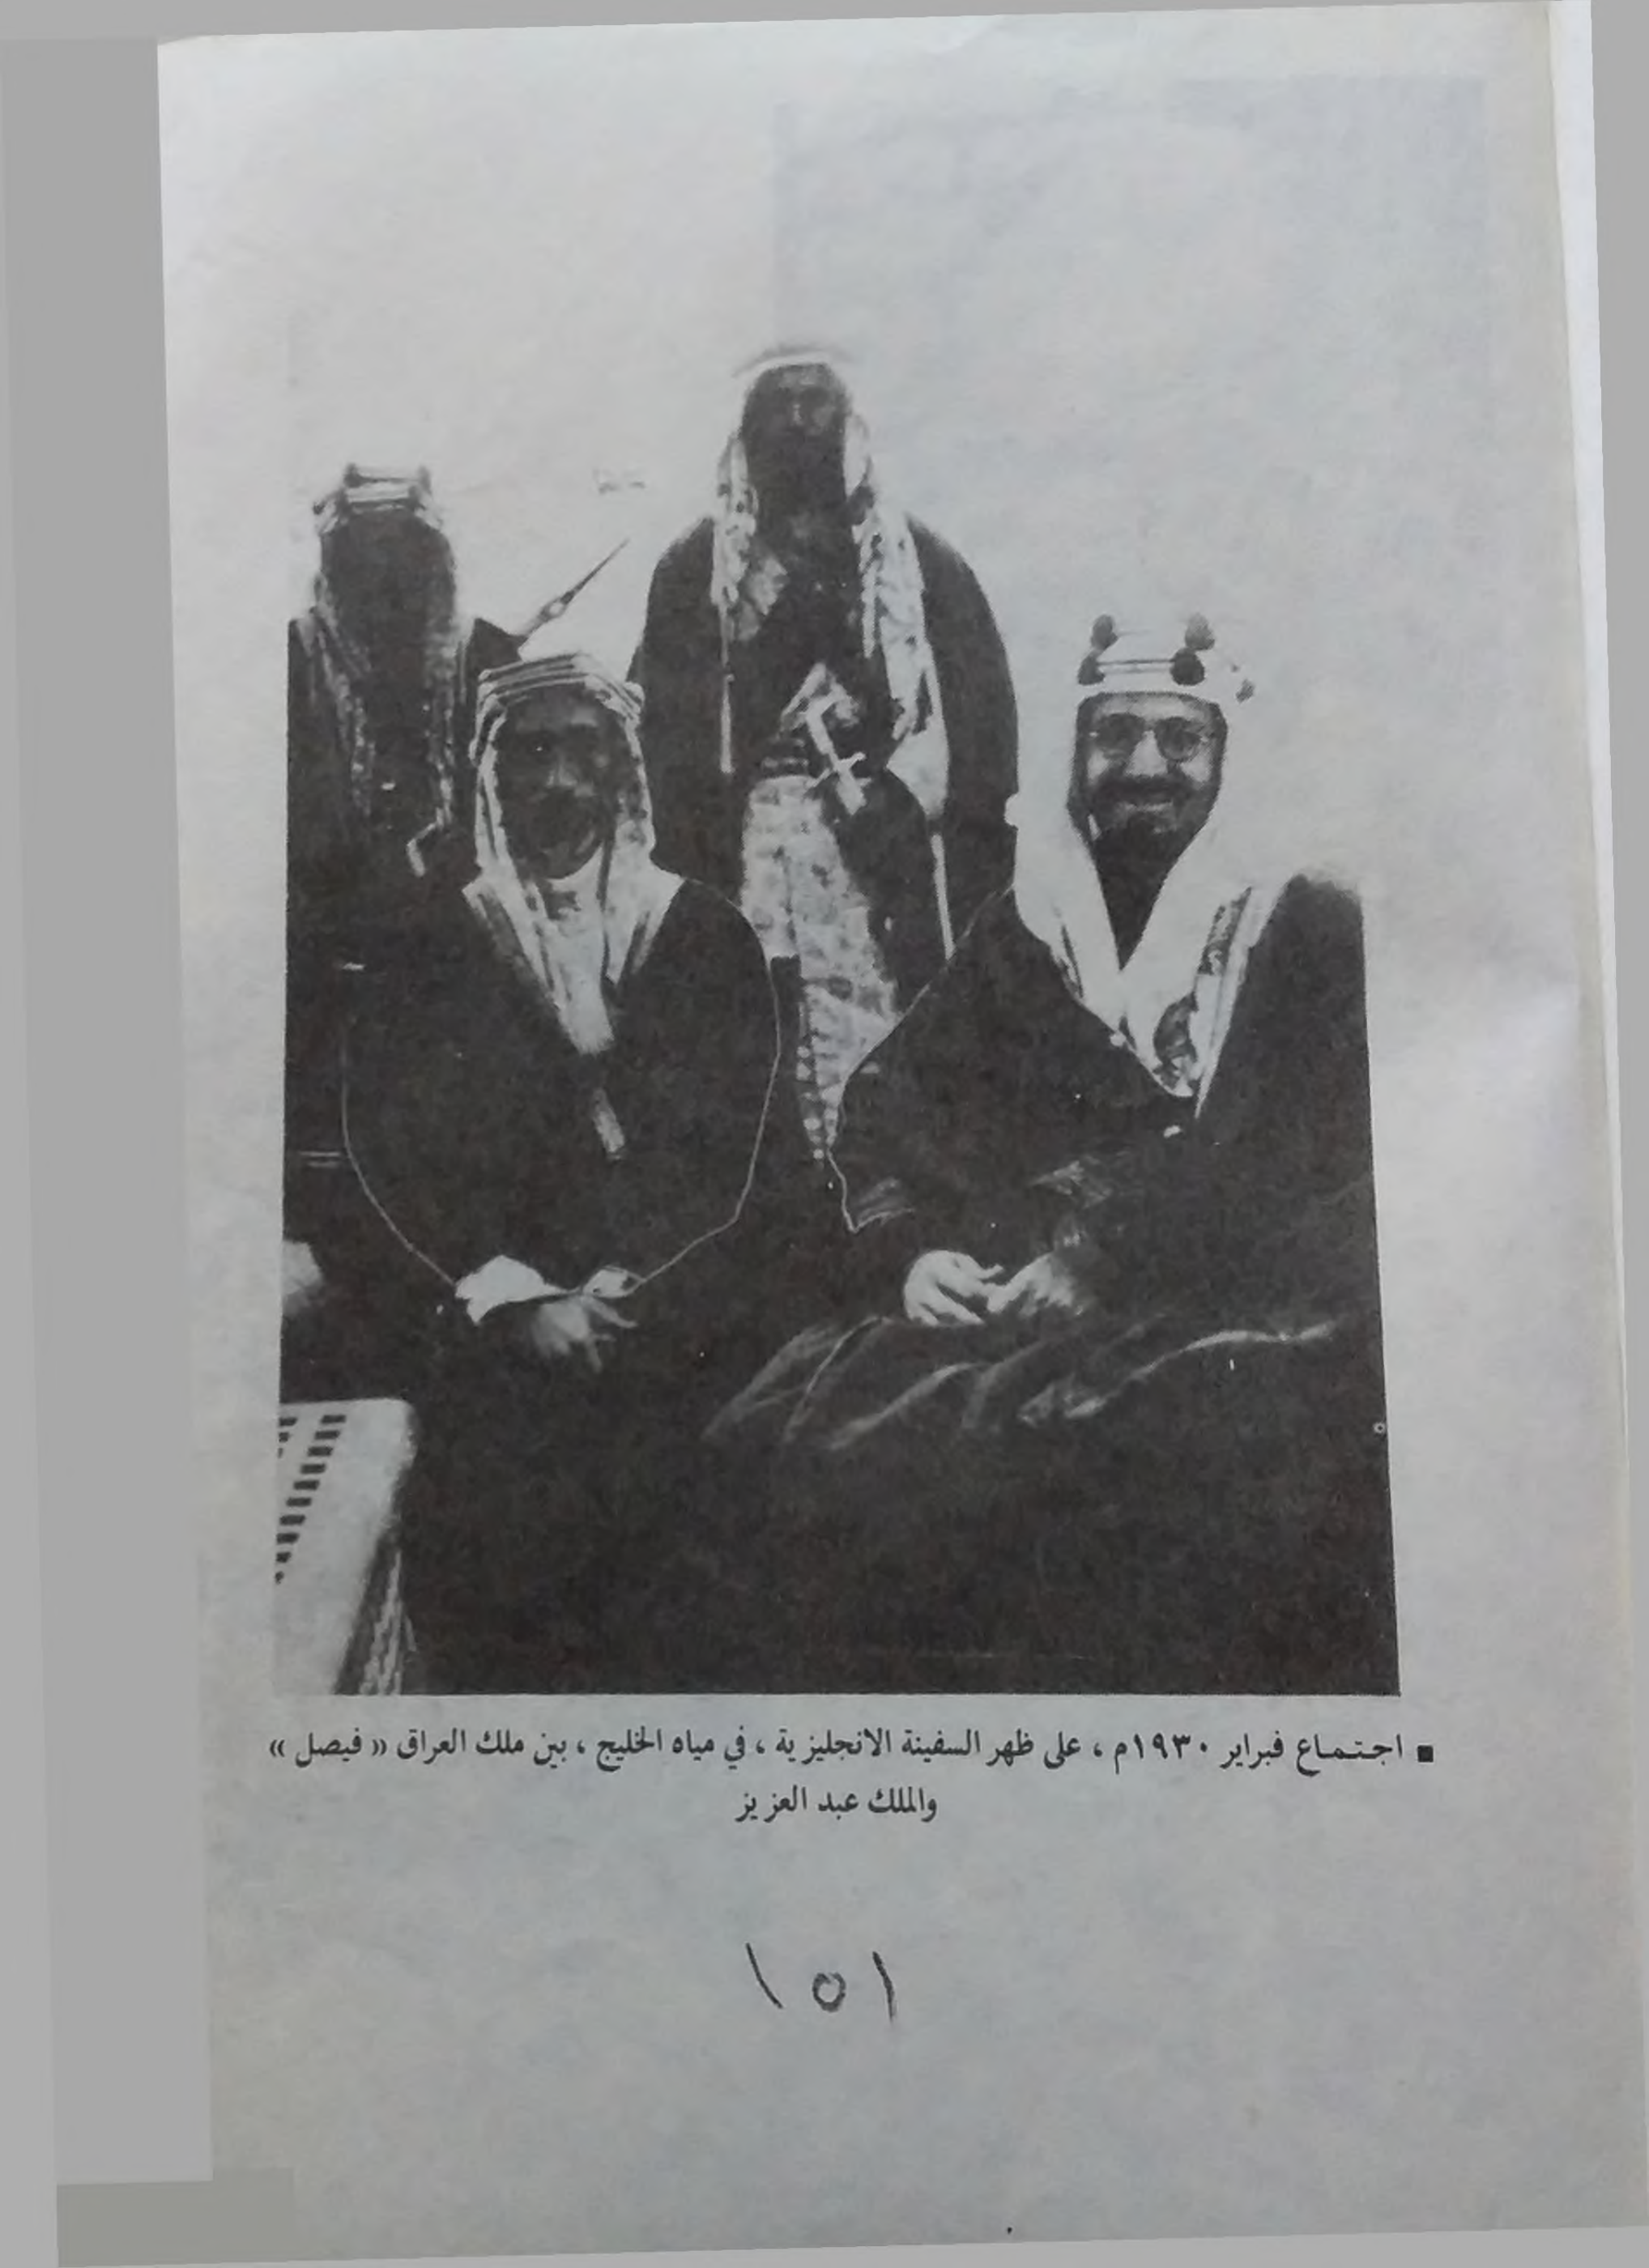 ■ اجتماع فبراير ١٩٣٠م ، على ظهر السفينة الانجليزية ، في مياه الخليج ، بين ملك العراق « فيصل »
والملك عبد العزيز
١٥١